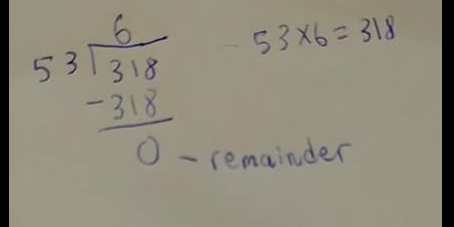 6
53 318
-318
0 - remainder
53×6=318